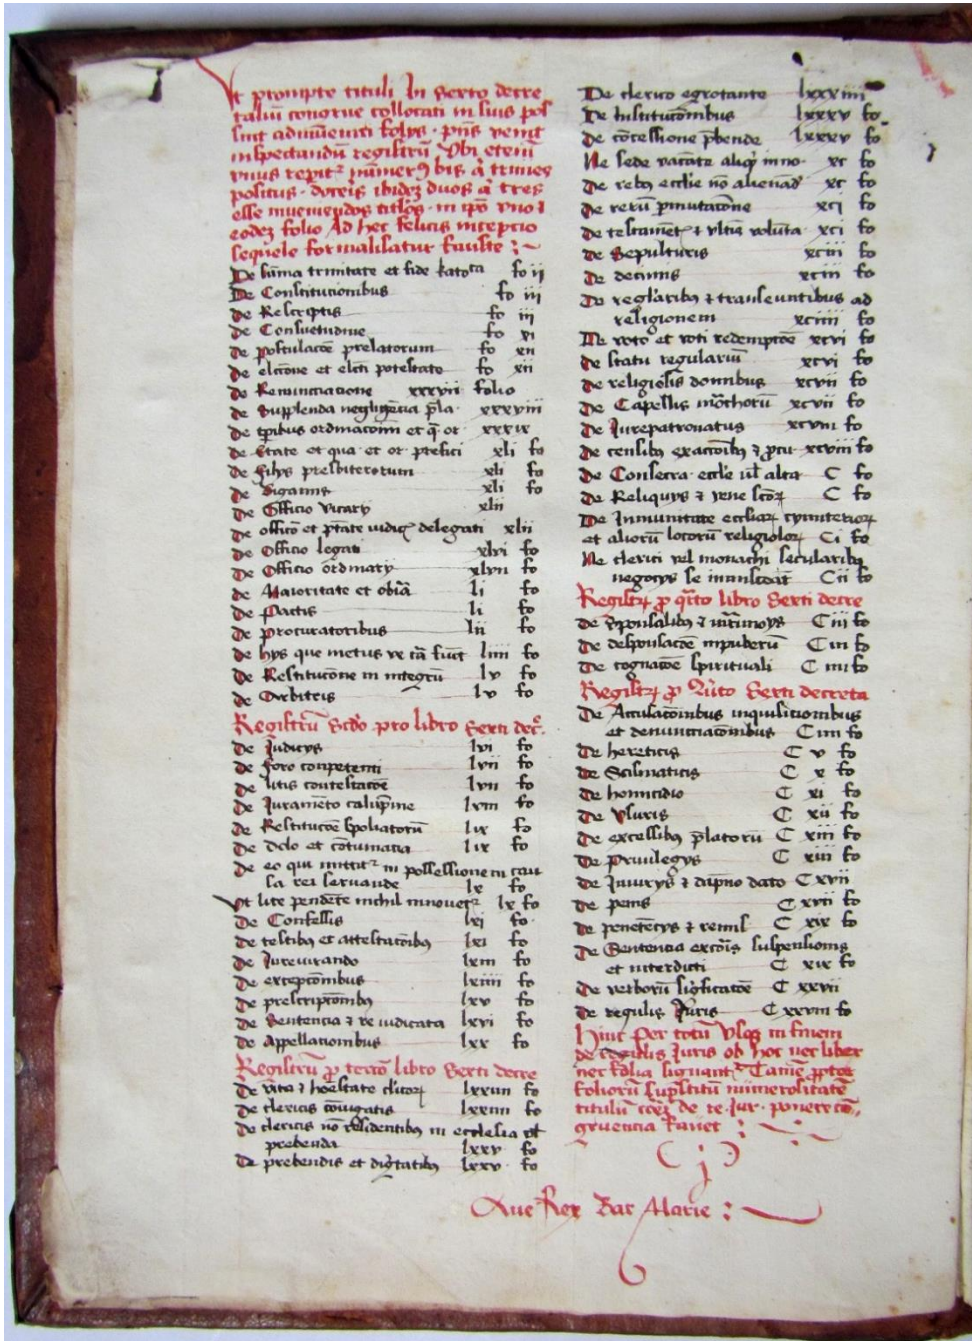 Ut prompte tituli In Sexto decre
talium congrue collocati in suis pos
sint adinueniri folijs · pñs venit
inspectandũ registrũ Vbi etenim
vnius repitr̃ numerꝰ bis a'
politus · doceis ibidez duos a' tres
esse inueniendos titlos · in ip̃o vno ⁊
eodez folio Ad hec felicis inceptio
sequele formalisatur fauste :~
De sũma trinitate et fide katoca fo ii
De Constitucionibus fo iii
De Rescriptis fo iii
De Consuetudine fo vi
De postulacõe prelatorum fo xii
De elcõne et elcti potestate fo xii
De Renunciacione xxxvii folio
De Supplenda negligẽcia p̃la · xxxviii
De tp̃ibus ordinacionũ et q̃ or · xxxix
De Etate et qua et or prefici xli fo
De filijs presbiterorum xli fo
De Bigamis xli fo
De Officio vicarij xlii
De officõ et ptãte iudicꝭ delegati xlii
De Officio legati xlvi fo
De Officio ordinarij xlvii fo
De Maioritate et obiã li fo
De Pactis li fo
De procuratoribus lii fo
De hijs que metus ve cã fiũt liiii fo
De Restitucõne in integrũ lv fo
De Arbitris lv fo
Registrũ Scdo pro libro Sexti decr̃.
De Judicijs lvi fo
De foro conpetenti lvii fo
De litis contestacõe lvii fo
De Juramẽto calũpnie lviii fo
De Restitucõe spoliatorũ lix fo
De dolo et cõtumacia lix fo
De eo qui mittitr̃ in possessionem cau
sa rei seruande lx fo
Vt lite pendẽte nichil innouetr̃ lx fo
De Confessis lxi fo
De testibꝰ et attestacõibꝰ lxi fo
De Jureiurando lxiii fo
De excepcõnibus lxiiii fo
De prescripcõnibꝰ lxv fo
De Sentencia ⁊ re iudicata lxvi fo
De Appellacionibus lxx fo
Registrũ p̱ tercõ libro Sexti decre
De vita ⁊ hoẽstate clicoꝝ lxxiiii fo
De clericis cõiugatis lxxiiii fo
De clericis nõ residentibus in ecclesia vl'
prebenda lxxv fo
De prebendis et digtatibꝰ lxxv fo
De clerico egrotante lxxxiiii
De Institucõnibus lxxxv fo.
De cõcessione p̃bende lxxxv fo
Ne sede vacãte aliqͥ inno· xc fo
De rebꝰ ecclie nõ alienãd' xc fo
De rerũ pmutacõne xci fo
De testament' ⁊ vltis volũta · xci fo
De Sepulturis xciii fo
De decimis xciii fo
De reglaribꝰ ⁊ transeuntibus ad
religionem xciiii fo
De voto et voti redempcõe xcvi fo
De statu regulariũ xcvi fo
De religiosis domibus xcvii fo
De Capellis mõchorũ xcvii fo
De Jurepatronatus xcviii fo
De censibꝰ exactõibꝰ ⁊ p̱cur · xcviii fo
De Consecra · ecclie vl' alta C fo
De Reliquijs ⁊ vene scõꝝ C fo
De Inmunitate eccliaꝝ cymiterioꝝ
et aliorũ locorũ religiosoꝝ Ci fo
Ne clerici vel monachi secularibꝰ
negocijs se inmisceãt Cii fo
Registꝝ p̱ qrto libro Sexti decre
De Sponsalibꝰ ⁊ mrimonijs Ciii fo
De desponsacõe inpuberũ Ciii fo
De cognacõe spirituali C iiii fo
Registꝝ p̱ Qũto Sexti decreta
De Accusacõnibus inquisicionibus
et denunciacõnibus Ciiii fo
De hereticis C v fo
De Scismaticis C x fo
De homicidio C xi fo
De Vsuris C xii fo
De excessibꝰ p̃latorũ C xiii fo
De Priuilegijs C xiii fo
De Iniurijs ⁊ dãpno dato Cxvii
De penis C xvii fo
De penetẽcijs ⁊ remiss C xix fo
De Sentencia excõis suspensionis
et interdicti C xix fo
De verborũ sigficacõe C xxvii
De regulis Juris C xxviii fo
Hinc Per totũ Vsqꝫ in finem
de regulis Juris ob hoc nec liber
nec folia signantr̃ Tamẽ p̱pter
foliorũ sup̱stitũ numerositatẽ
titulũ de re · Jur · ponere cõ,
gruencia fauet :~
Aue Rex Bar Marie :~